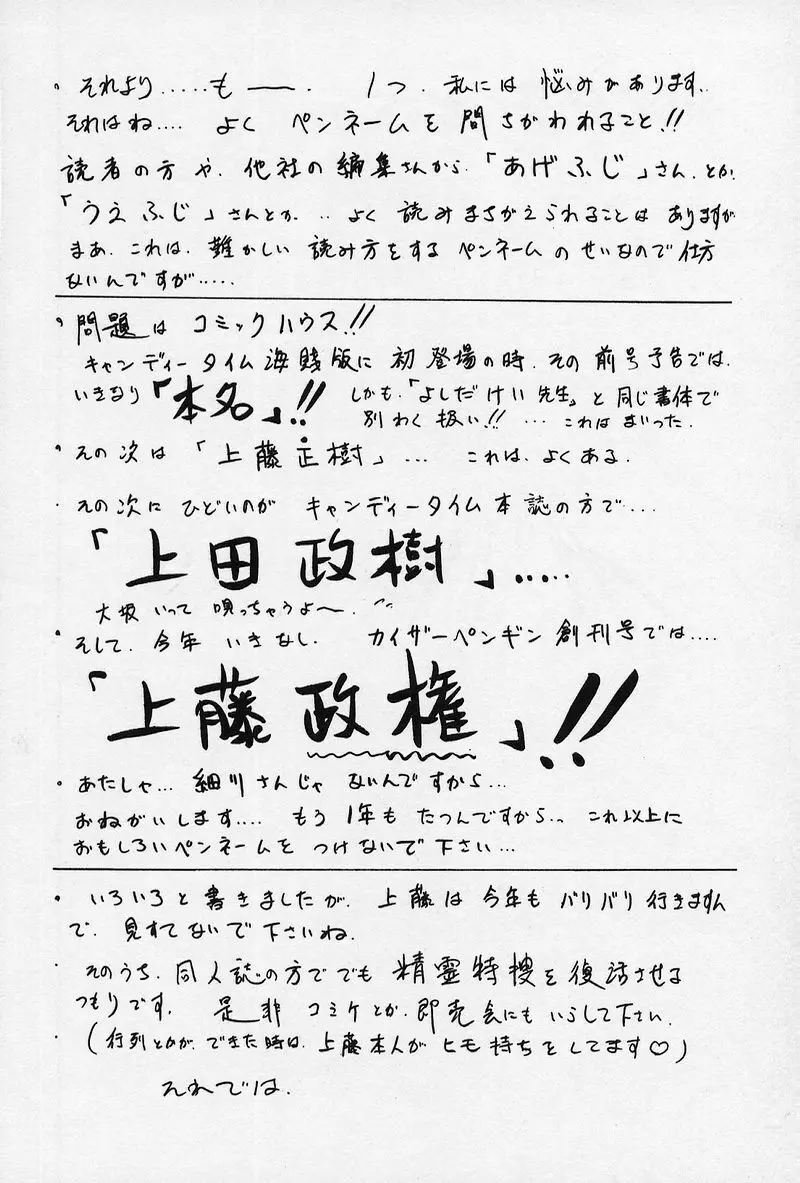 。それより.....も──. 1つ. 私には 悩みがあります.
それはね.... よく ペンネームを 問ちがわれること!!
読者の方や. 他社の編集さんから. 「あげふじ」さん. とか.
「うえふじ」さんとか. .. よく 読みまちがえられることは ありますが
まあ. これは. 難かしい 読み方をする ペンネームのせいなので仕方
ないんですが.....
。問題は コミックハウス!!
キャンディータイム海賊版に 初登場の時. その前号予告では.
いきなり「本名」!! しかも.「よしだけい先生」と同じ書体で
別わく扱い!! ... これは まいった.
。その次は 「上藤正樹」... これは. よくある.
・その次に ひどいのが キャンディータイム本誌の方で...
「上田政樹」.....
大坂いって 唄っちゃうよ〜.
。そして. 今年 いきなし. カイザーペンギン創刊号では....
「上藤政権」!!
。あたしゃ... 細川さんじゃ ないんですから...
おねがいします.... もう 1年も たつんですから.. これ以上に
おもしろいペンネームを つけないで下さい...
・いろいろと書きましたが. 上藤は 今年も バリバリ行きますん
で. 見すてないで下さいね.
・そのうち. 同人誌の方ででも 精霊特捜を復活させる
つもりです. 是非 コミケとか. 即売会にも いらして下さい.
・(行列とかが. できた時は. 上藤本人が ヒモ持ちをしてます♡)
それでは.